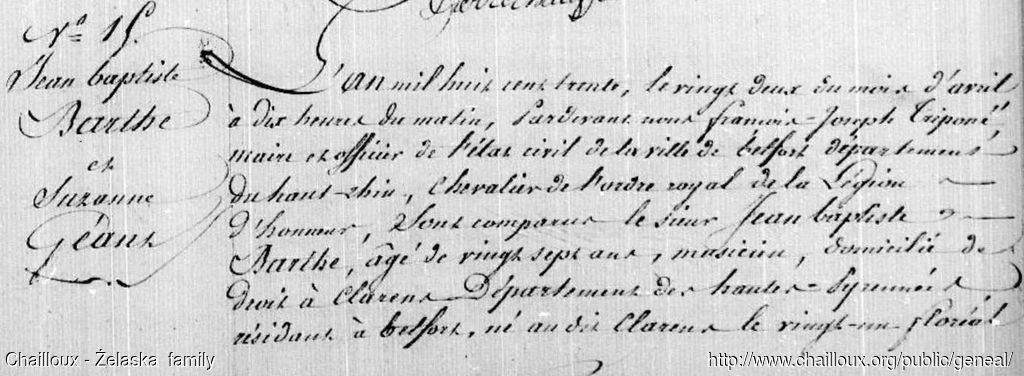 N° 15.
Jean baptiste
Barthe
et
Suzanne
Géant
L'an mil huit cent trente, le vingt deux du mois d'avril
à dix heures du matin, Pardevant nous françois-Joseph Triponé,
maire et officier de l'état civil de la ville de Belfort département
du haut-rhin, Chevalier de l'ordre royal de la Légion
d'honneur, Sont comparus le sieur Jean baptiste
Barthe, âgé de vingt sept ans, musicien, domicilié de
droit à Clarens Département des hautes-Pyrennées
résidant à Belfort, né au dit Clarens le vingt-un floréal
Chailloux - Želaska family
http://www.chailloux.org/public/geneal/